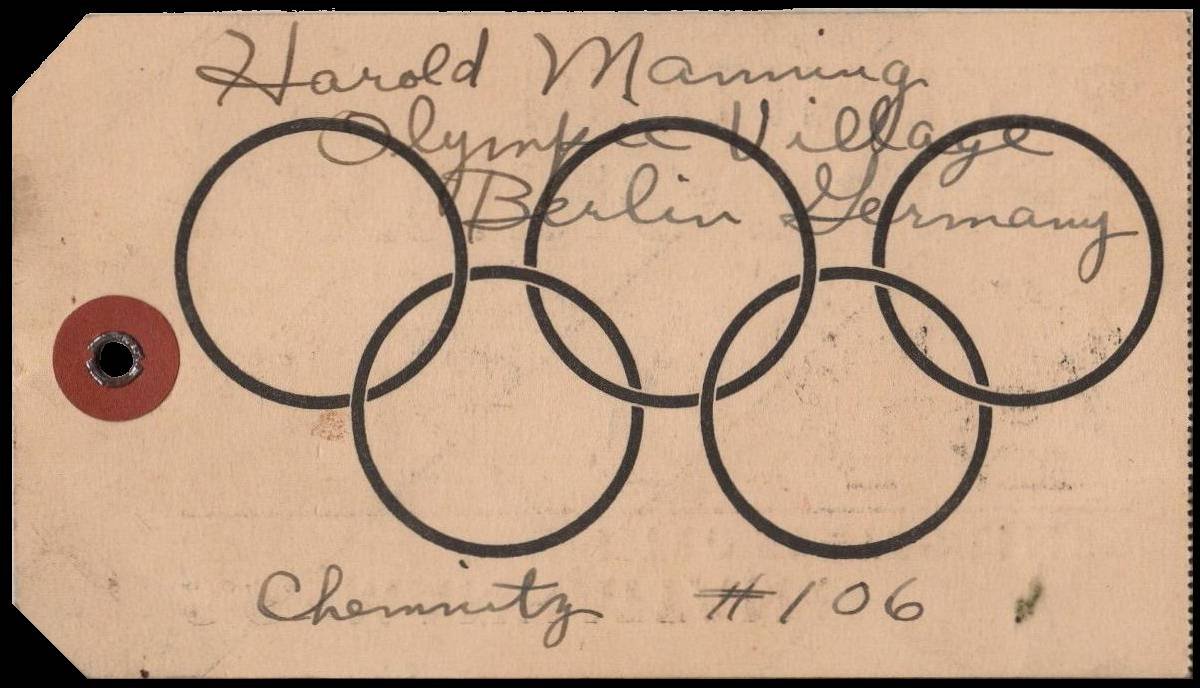 Harold Manning
Olympic Village
Berlin Germany
Chemnitz #106